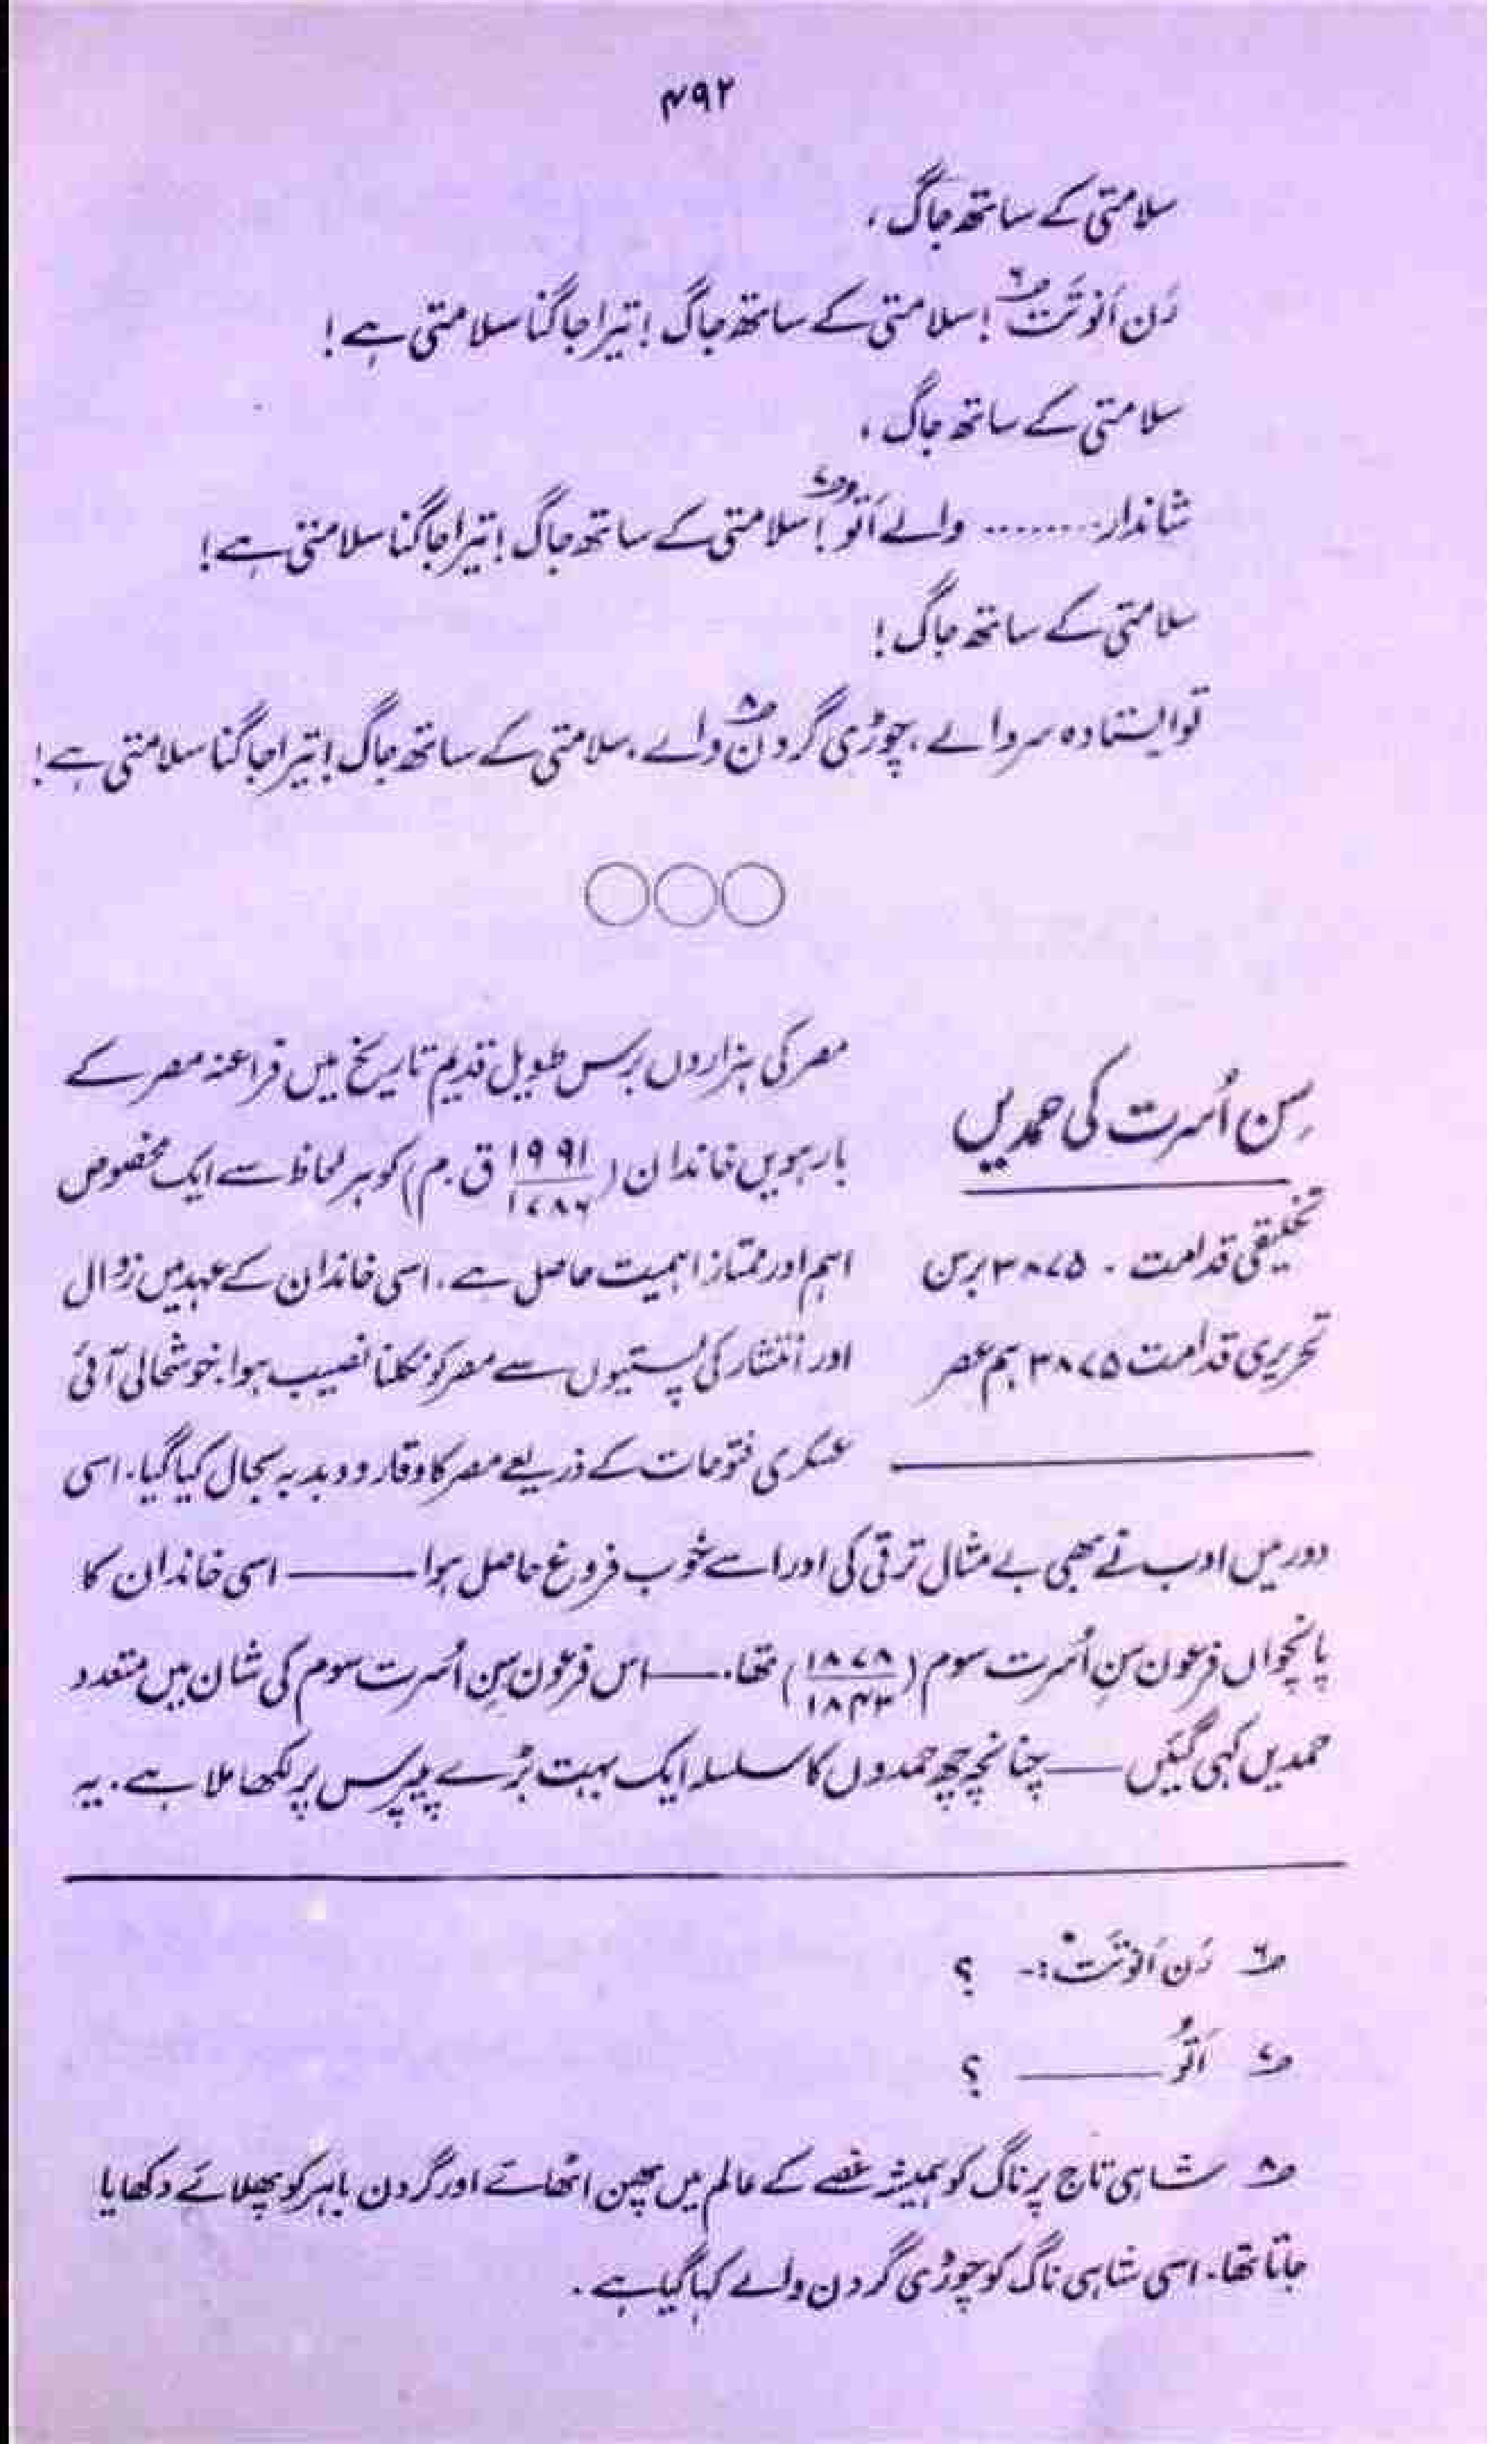 ۴۹۲
سلامتی کے ساتھ جاگ ،
رَن اَنوتَت ؁۶ ! سلامتی کے ساتھ جاگ ! تیرا جاگنا سلامتی ہے !
سلامتی کے ساتھ جاگ ،
شاندار ....... والے اَتُو ؁۷ ! سلامتی کے ساتھ جاگ ! تیرا جاگنا سلامتی ہے !
سلامتی کے ساتھ جاگ !
تو ایستادہ سر والے ، چوڑی گردن ؁۸ والے ، سلامتی کے ساتھ جاگ ! تیرا جاگنا سلامتی ہے !
سِن اُسرت کی حمدیں
تخلیقی قدامت - ۳۸۷۵ برس
تحریری قدامت ۳۸۷۵ ہم عصر
مصر کی ہزاروں برس طویل قدیم تاریخ میں فراعنہ مصر کے
بارہویں خاندان (۱۹۹۱/۱۷۸۶ ق.م) کو ہر لحاظ سے ایک مخصوص
اہم اور ممتاز اہمیت حاصل ہے . اسی خاندان کے عہد میں زوال
اور انتشار کی پستیوں سے مصر کو نکلنا نصیب ہوا . خوشحالی آئی
عسکری فتوحات کے ذریعے مصر کا وقار و دبدبہ بحال کیا گیا . اسی
دور میں ادب نے بھی بے مثال ترقی کی اور اسے خوب فروغ حاصل ہوا ——— اسی خاندان کا
پانچواں فرعون سِن اُسرت سوم (۱۸۷۸/۱۸۴۳) تھا . —— اس فرعون سِن اُسرت سوم کی شان میں متعدد
حمدیں کہی گئیں —— چنانچہ چھ حمدوں کا سلسلہ ایک بہت بڑے پیپرس پر لکھا ملا ہے . یہ
؁۶ رَن اَنوتَت :- ؟
؁۷ اَتُو ——— ؟
؁۸ شاہی تاج پر ناگ کو ہمیشہ غصے کے عالم میں پھن اٹھائے اور گردن باہر کو پھیلائے دکھایا
جاتا تھا . اسی شاہی ناگ کو چوڑی گردن والے کہا گیا ہے .